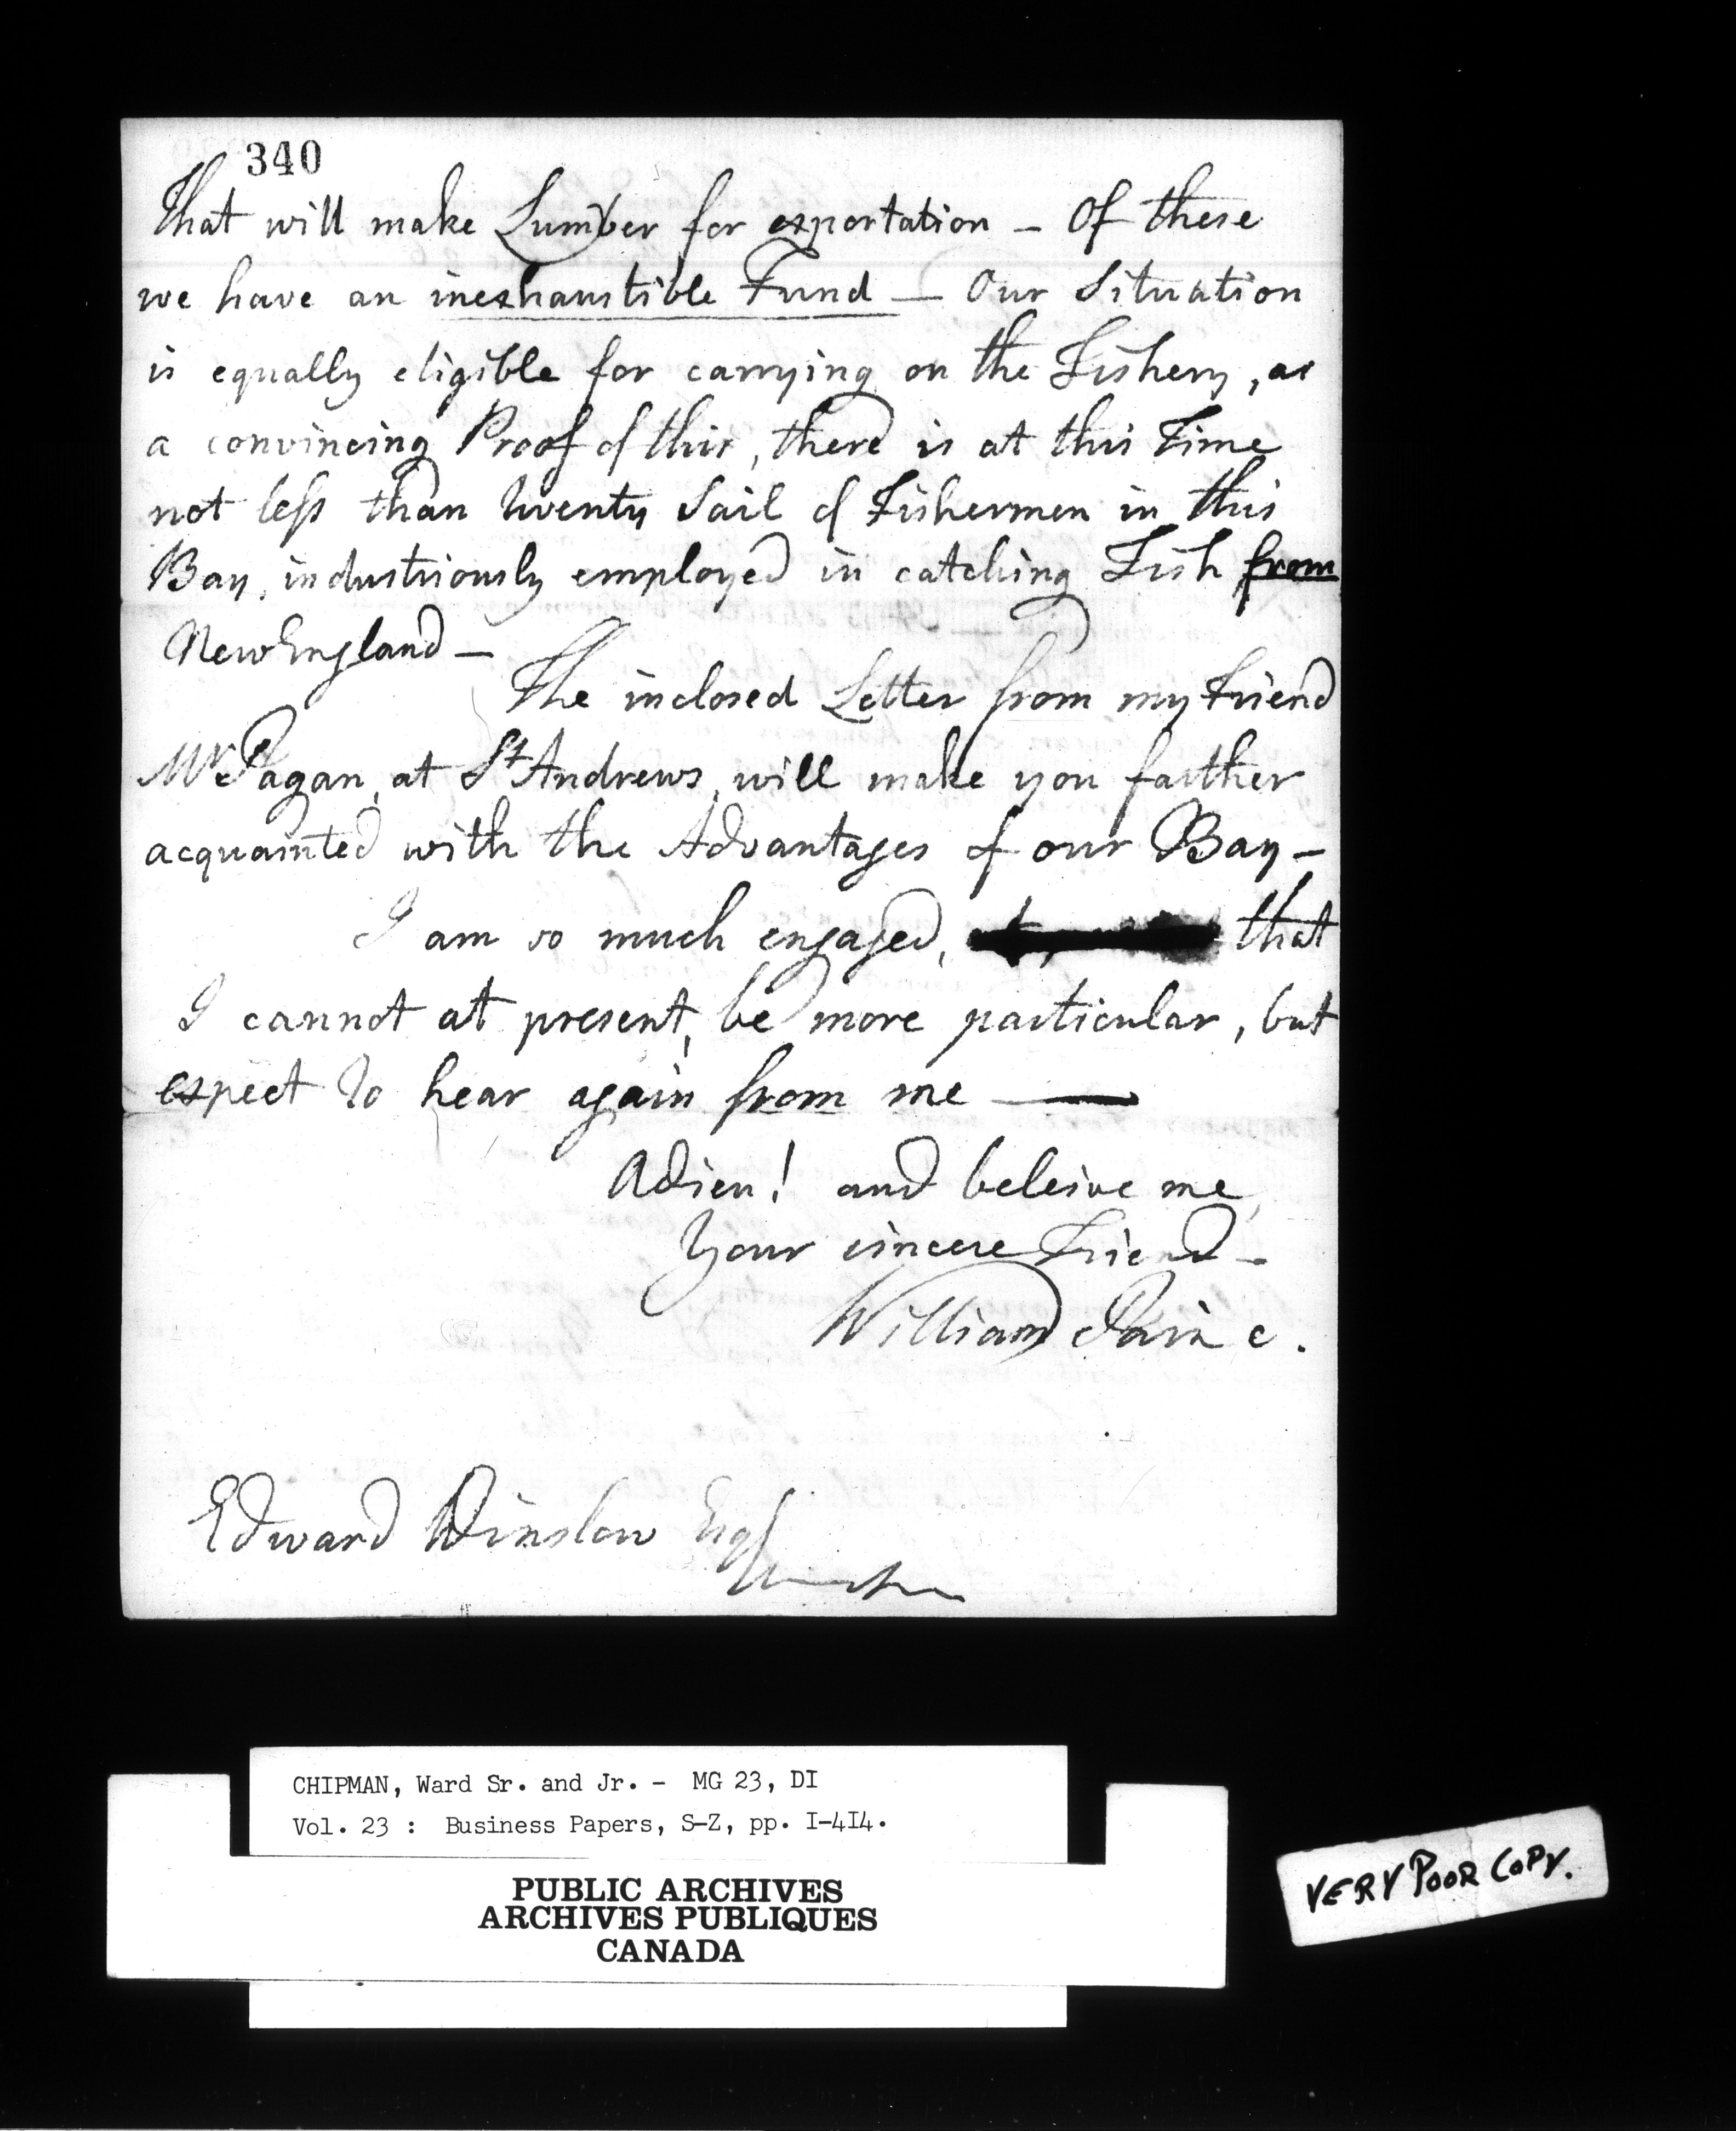 340
That will make Lumber for exportation – Of these
we have an inexhaustible Fund — Our Situation
is equally eligible for carrying on the Fishery, as
a convincing Proof of this, there is at this Time
not less than twenty Sail of Fishermen in this
Bay, industriously employed in catching Fish from
New England —
The inclosed Letter from my Friend
Mr Pagan, at St Andrews, will make you farther
acquainted with the Advantages of our Bay –
I am so much engaged, that
I cannot at present, be more particular, but
expect to hear again from me —
Adieu! and beleive me,
Your sincere Friend –
William Paine.
Edward Winslow Esq
CHIPMAN, Ward Sr. and Jr. - MG 23, DI
Vol. 23 : Business Papers, S-Z, pp. I-4I4.
PUBLIC ARCHIVES
ARCHIVES PUBLIQUES
CANADA
VERY POOR COPY.